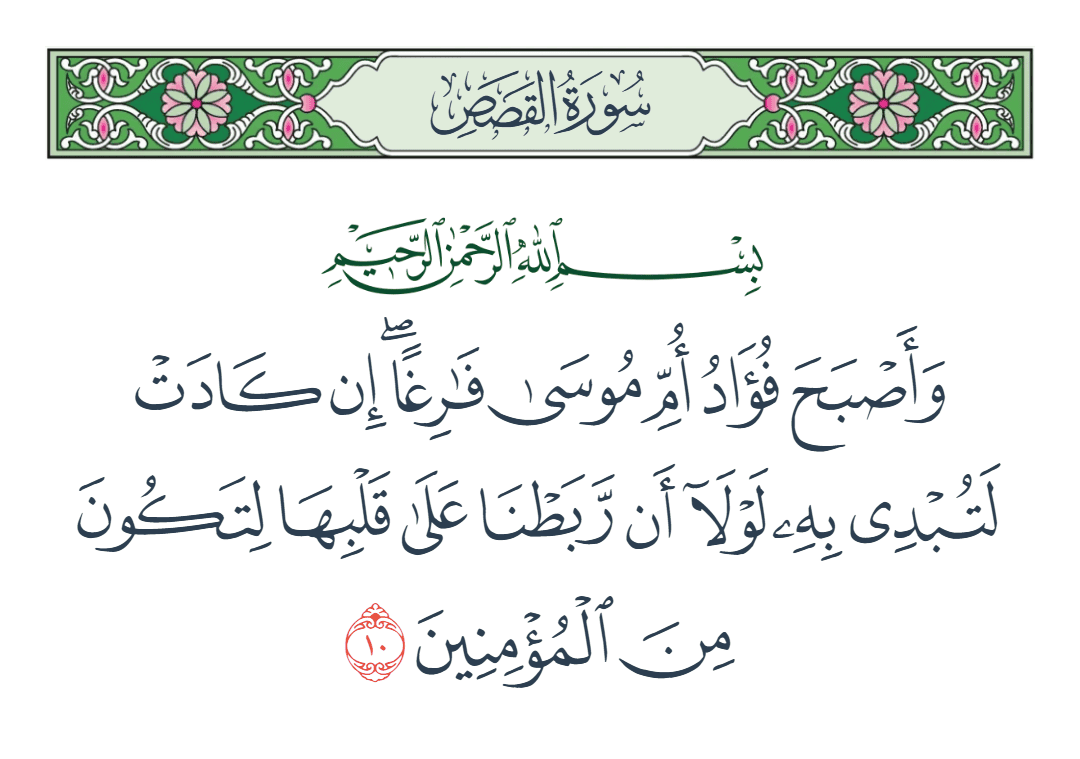 سُورَةُ القَصَصِ
بِسْمِ ٱللَّهِ ٱلرَّحْمَٰنِ ٱلرَّحِيمِ
وَأَصْبَحَ فُؤَادُ أُمِّ مُوسَىٰ فَٰرِغًا ۖ إِن كَادَتْ
لَتُبْدِى بِهِۦ لَوْلَآ أَن رَّبَطْنَا عَلَىٰ قَلْبِهَا لِتَكُونَ
مِنَ ٱلْمُؤْمِنِينَ ١٠